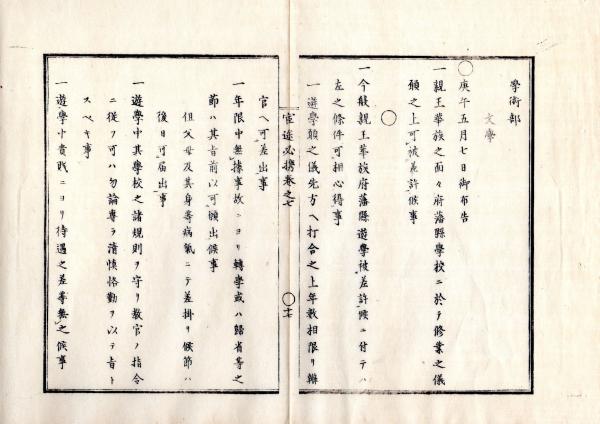 學術部
文學
〇庚午五月七日御布告
一親王華族之面々府藩縣學校ニ於テ修業之儀
願之上可被差許候事
〇
一今般親王華族府藩縣遊學被差許候ニ付テハ
左之條件可相心得事
一遊學願之儀先方ヘ打合之上年数相限リ辨
官途必携巻之七
〇十七
官ヘ可差出事
一年限中無據事故ニヨリ轉學或ハ歸省等之
節ハ其旨前以可願出候事
但父母及其身等病氣ニテ差掛リ候節ハ
後日可届出事
一遊學中其學校之諸規則ヲ守リ教官ノ指令
ニ從フ可ハ勿論專ラ清慎恪勤ヲ以テ旨ト
スベキ事
一遊學中貴賤ニヨリ待遇之差等無之候事